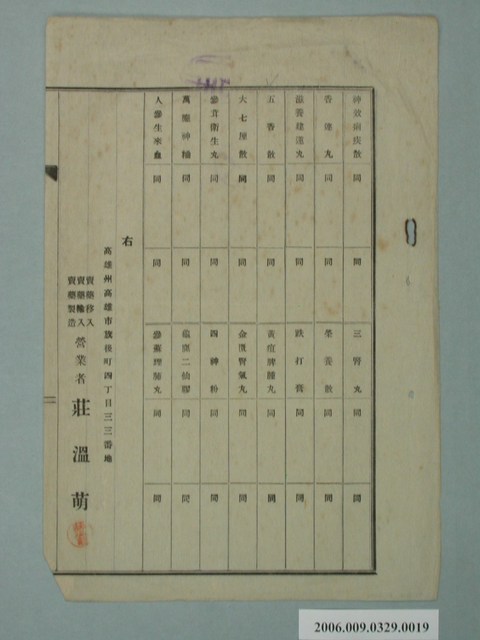 神效痢疾散 同 同 三腎丸 同 同
香連丸 同 同 榮養散 同 同
滋養雄蓮丸 同 同 跌打膏 同 同
五香散 同 同 黃疸脾腫丸 同 同
大七厘散 同 同 金匱腎氣丸 同 同
參茸衛生丸 同 同 四神粉 同 同
萬應神油 同 同 龜鹿二仙膠 同 同
人參生家血 同 同 參蘇理肺丸 同 同
右
高雄州高雄市旗後町四丁目三三番地
賣藥移入
賣藥輸入
賣藥製造
營業者 莊溫萌
2006.009.0329.0019